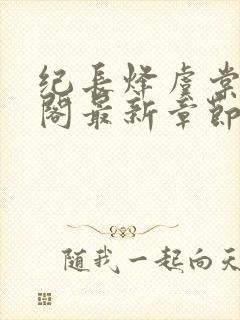 纪长烽虞棠
阁最新章节
随我一起向天